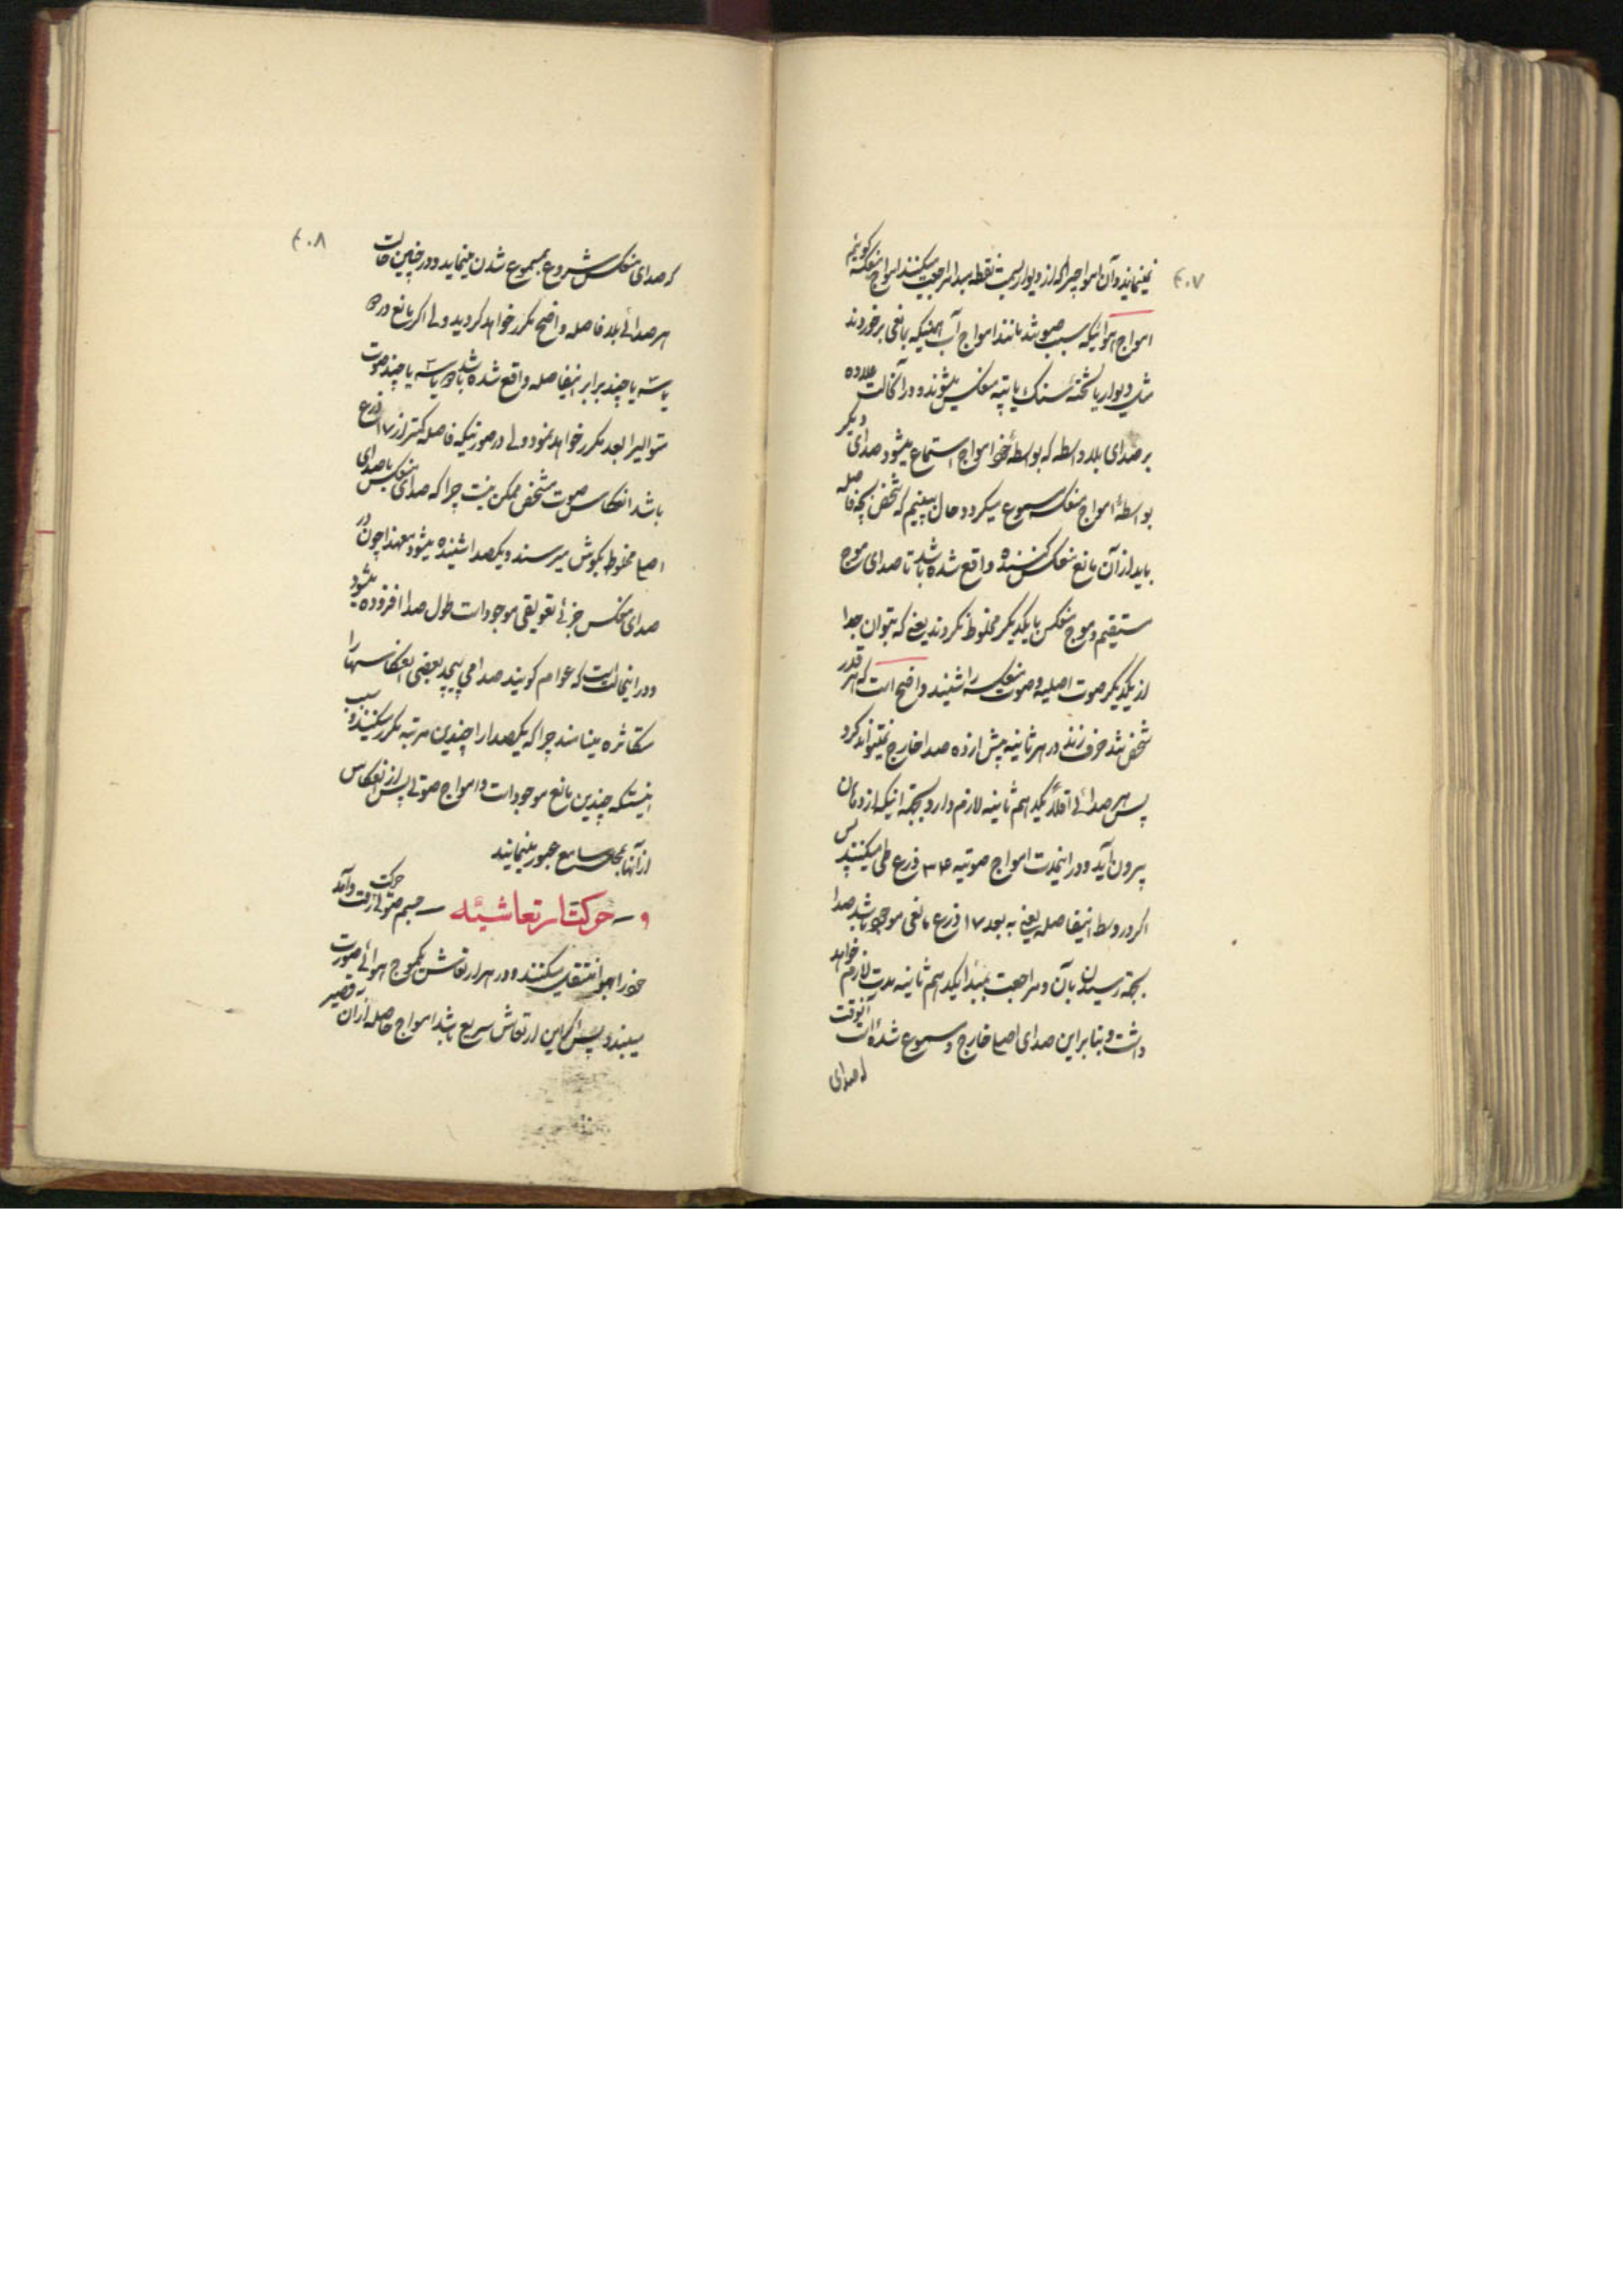 ۴۰۷
مینمایند و آن امواجیرا که از دیوار بسمت نقطه مبدا مراجعت میکنند امواج منعکسه گوئیم
امواج هوائیکه سبب صوتند مانند امواج آب همینکه بمانعی برخوردند
مثل دیوار یا تخته سنگ یا تپه منعکس میشوند و در آنحالت علاوه
بر صدای بلاواسطه که بواسطهٔ خود امواج استماع میشود صدای دیگر
بواسطهٔ امواج منعکسه مسموع میگردد حال ببینیم که شخص بچه فاصله
باید از آن مانع منعکس کننده واقع شده باشد تا صدای موج
مستقیم و موج منعکس با یکدیگر مخلوط نگردند یعنی که بتوان جدا
از یکدیگر صوت اصلیه و صوت منعکسه را شنید واضح است که هر قدر
شخص تند حرف زند در هر ثانیه بیش از ده صدا خارج نمیتواند کرد
پس هر صدائی اقلاً یکدهم ثانیه لازم دارد بجهة اینکه از دهان
بیرون آید و در اینمدت امواج صوتیه ۳۴ ذرع طی میکنند پس
اگر در وسط اینفاصله یعنی به بعد ۱۷ ذرع مانعی موجود باشد صدا
بجهة رسیدن بآن و مراجعت بمبدأ یکدهم ثانیه مدت لازم خواهد
داشت و بنابراین صدای اصلی خارج و مسموع شده است آنوقت
که صدای
۴۰۸
که صدای منعکس شروع بمسموع شدن مینماید و در چنین حالت
هر صدائی بلافاصله واضح مکرر خواهد گردید ولی اگر مانع در دو
یا سه یا چند برابر اینفاصله واقع شده باشد دو یا سه یا چند صوت
متوالیرا بعد مکرر خواهد نمود ولی در صورتیکه فاصله کمتر از ۱۷ ذرع
باشد انعکاس صوت مشخص ممکن نیست چرا که صدای منعکس با صدای
اصلی مخلوط بگوش میرسند و یکصدا شنیده میشود معهذا چون در
صدای منعکس جزئی تعویقی موجود است طول صدا افزوده میشود
و در اینحالت است که عوام گویند صدا می پیچد بعضی انعکاسها را
متکاثره مینامند چرا که یکصدا را چندین مرتبه مکرر میکنند و سبب
اینستکه چندین مانع موجود است و امواج صوتی پس از انعکاس
از آنها بمحل سامع عبور مینمایند
و – حرکت ارتعاشیّه – جسم صوتی از رفت و آمد حرکت
خود را بهوا منتقل میکنند و در هر ارتعاش یکموج هوائی صورت
میبندد پس اگر این ارتعاش سریع باشد امواج حاصله از آن قصیر